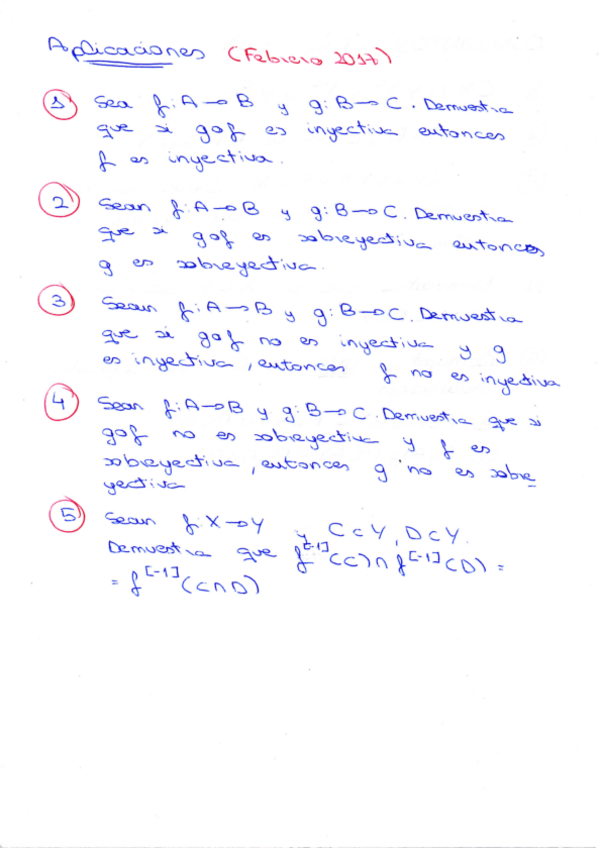 Aplicaciones (Febrero 2017)
1 Sea f: A → B y g: B → C. Demuestra
que si g o f es inyectiva entonces
f es inyectiva.
2 Sean f: A → B y g: B → C. Demuestra
que si g o f es sobreyectiva entonces
g es sobreyectiva.
3 Sean f: A → B y g: B → C. Demuestra
que si g o f no es inyectiva y g
es inyectiva, entonces f no es inyectiva
4 Sean f: A → B y g: B → C. Demuestra que si
g o f no es sobreyectiva y f es
sobreyectiva, entonces g no es sobre_
yectiva
5 Sean f: X → Y y C ⊂ Y, D ⊂ Y.
Demuestra que f[-1](C) ∩ f[-1](D) =
= f[-1](C ∩ D)